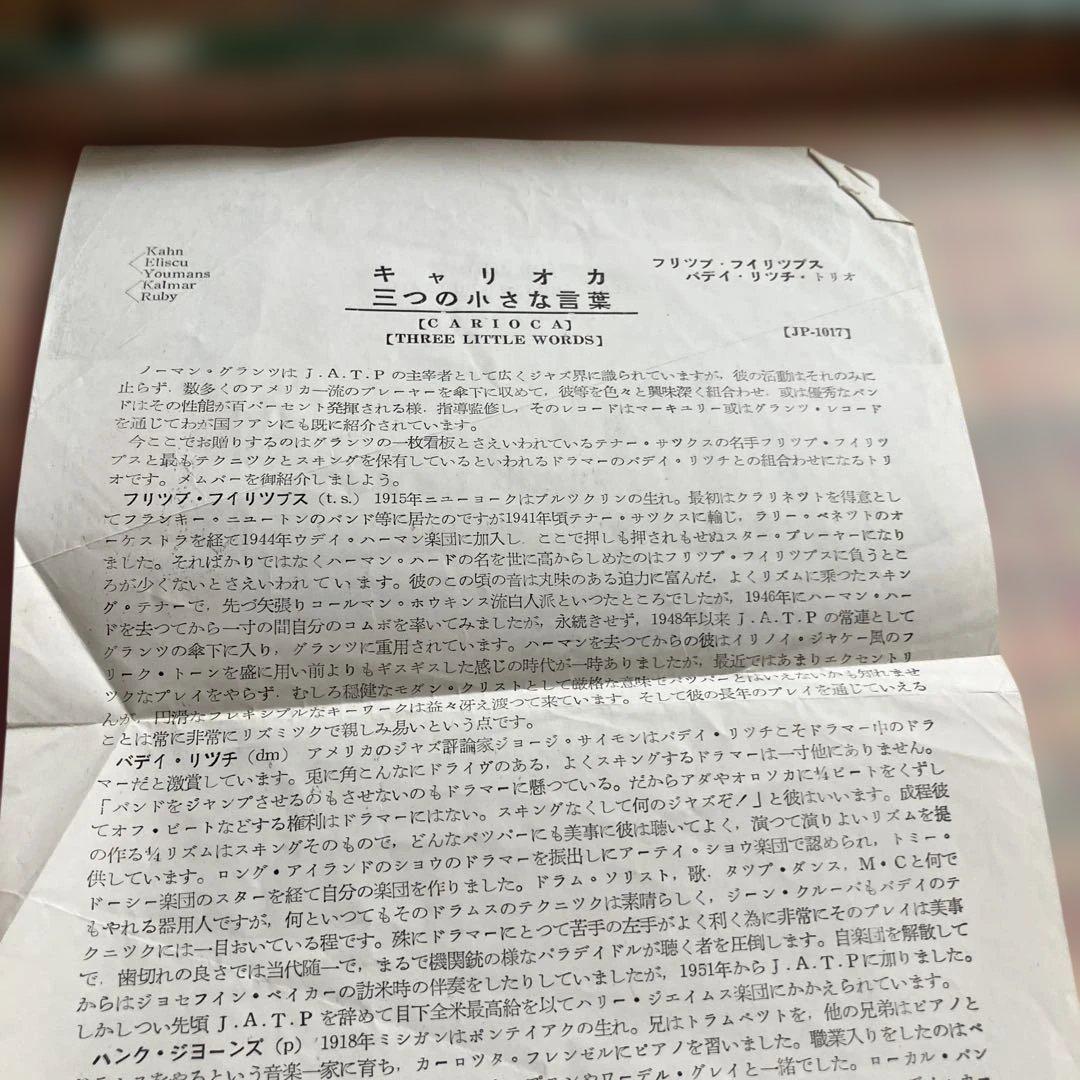 Kahn
Eliscu
Youmans
Kalmar
Ruby
キャリオカ
三つの小さな言葉
[CARIOCA]
[THREE LITTLE WORDS]
フリツプ・フイリツプス
バデイ・リツチ・トリオ
[JP-1017]
ノーマン・グランツは J.A.T.P の主宰者として広くジャズ界に識られていますが、彼の活動はそれのみに
止らず、数多くのアメリカ一流のプレーヤーを傘下に収めて、彼等を色々と興味深く組合わせ、或は優秀なバン
ドはその性能が百パーセント発揮される様、指導監修し、そのレコードはマーキユリー或はグランツ・レコード
を通じてわが国フアンにも既に紹介されています。
今ここでお贈りするのはグランツの一枚看板とさえいわれているテナー・サツクスの名手フリツプ・フイリツ
プスと最もテクニツクとスキングを保有しているといわれるドラマーのバデイ・リツチとの組合わせになるトリ
オです。メムバーを御紹介しましよう。
フリツプ・フイリツプス (t.s.) 1915年ニューヨークはブルツクリンの生れ。最初はクラリネツトを得意とし
てフランキー・ニュートンのバンド等に居たのですが1941年頃テナー・サツクスに転じ、ラリー・ベネツトのオ
ーケストラを経て1944年ウデイ・ハーマン楽団に加入し、ここで押しも押されもせぬスター・プレーヤーになり
ました。そればかりではなくハーマン・ハードの名を世に高からしめたのはフリツプ・フイリツプスに負うとこ
ろが少くないとさえいわれています。彼のこの頃の音は丸味のある迫力に富んだ、よくリズムに乗つたスキン
グ・テナーで、先づ矢張りコールマン・ホウキンス流白人派といつたところでしたが、1946年にハーマン・ハー
ドを去つてから一寸の間自分のコムボを率いてみましたが、永続きせず、1948年以来 J.A.T.P の常連として
グランツの傘下に入り、グランツに重用されています。ハーマンを去つてからの彼はイリノイ・ジャケー風のフ
リーク・トーンを盛に用い前よりもギスギスした感じの時代が一時ありましたが、最近ではあまりエクセントリ
ツクなプレイをやらず、むしろ穏健なモダン・クリストとして厳格な意味でバツパーとはいえないかも知れませ
んが、円滑なフレキシブルなキーワークは益々冴え渡つて来ています。そして彼の長年のプレイを通じていえる
ことは常に非常にリズミツクで親しみ易いという点です。
バデイ・リツチ (dm) アメリカのジャズ評論家ジョージ・サイモンはバデイ・リツチこそドラマー中のドラ
マーだと激賞しています。兎に角こんなにドライヴのある、よくスキングするドラマーは一寸他にありません。
「バンドをジャンプさせるのもさせないのもドラマーに懸つている。だからアダやオロソカに4/4ビートをくずし
てオフ・ビートなどする権利はドラマーにはない。スキングなくして何のジャズぞ!」と彼はいいます。成程彼
の作る4/4リズムはスキングそのもので、どんなバツパーにも美事に彼は聴いてよく、演つて演りよいリズムを提
供しています。ロング・アイランドのショウのドラマーを振出しにアーテイ・ショウ楽団で認められ、トミー・
ドーシー楽団のスターを経て自分の楽団を作りました。ドラム・ソリスト、歌、タツプ・ダンス、M・Cと何で
もやれる器用人ですが、何といつてもそのドラムスのテクニツクは素晴らしく、ジーン・クルーパもバデイのテ
クニツクには一目おいている程です。殊にドラマーにとつて苦手の左手がよく利く為に非常にそのプレイは美事
で、歯切れの良さでは当代随一で、まるで機関銃の様なパラデイドルが聴く者を圧倒します。自楽団を解散して
からはジョセフイン・ベイカーの訪米時の伴奏をしたりしていましたが、1951年からJ.A.T.Pに加りました。
しかしつい先頃 J.A.T.P を辞めて目下全米最高給を以てハリー・ジエイムス楽団にかかえられています。
ハンク・ジョーンズ (p) 1918年ミシガンはポンテイアクの生れ。兄はトラムペツトを、他の兄弟はピアノと
ドラムスをやるという音楽一家に育ち、カーロツタ・フレンゼルにピアノを習いました。職業入りをしたのはペ
ワーデル・グレイと一緒でした。ローカル・バン